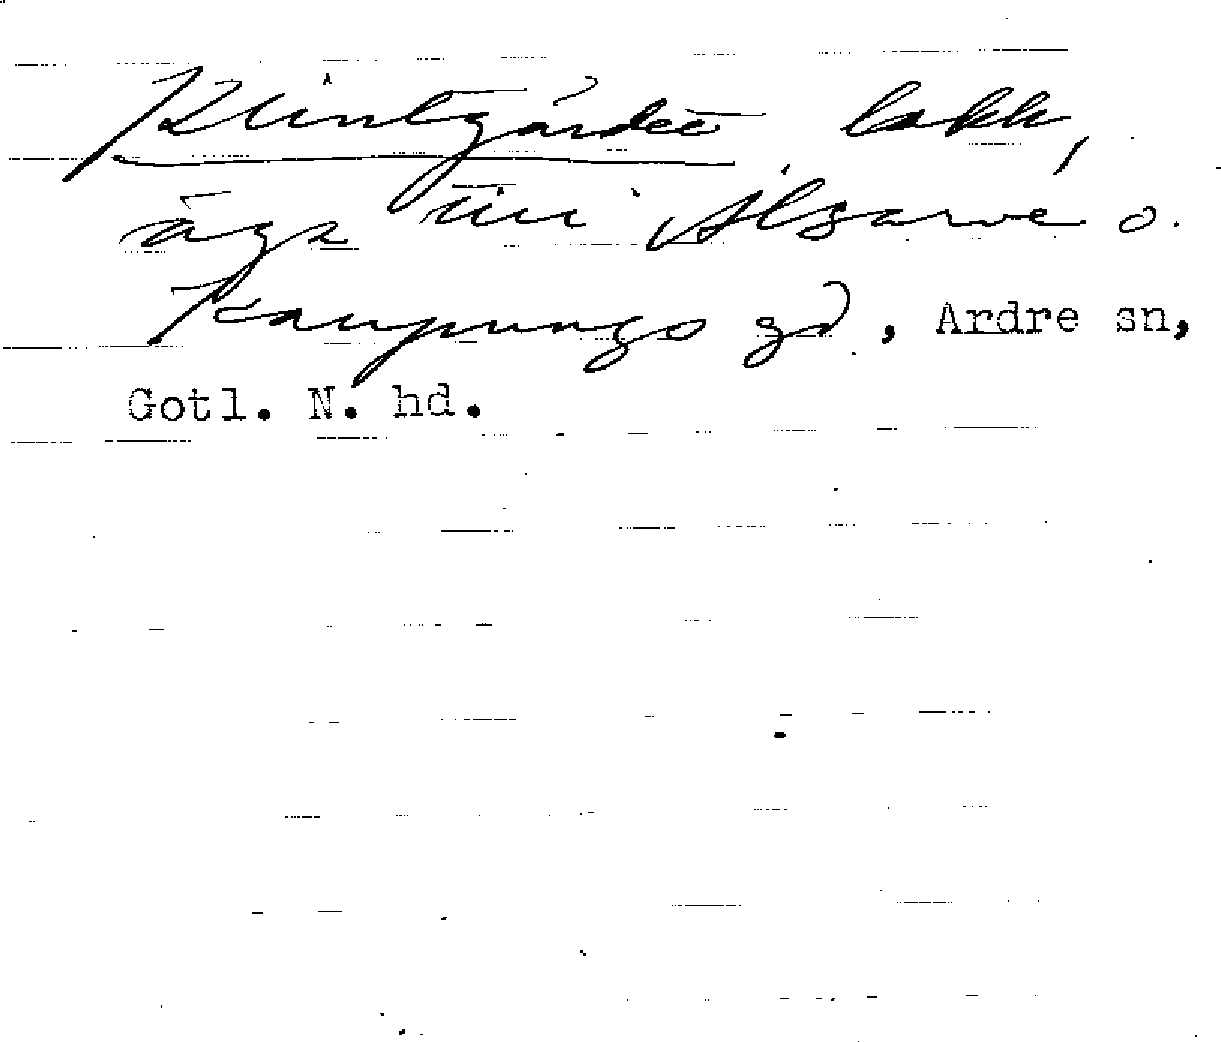 Klintgårdet, bakk,
äga till Alsarve o.
Kaupungs gd, Ardre sn,
Gotl. N. hd.